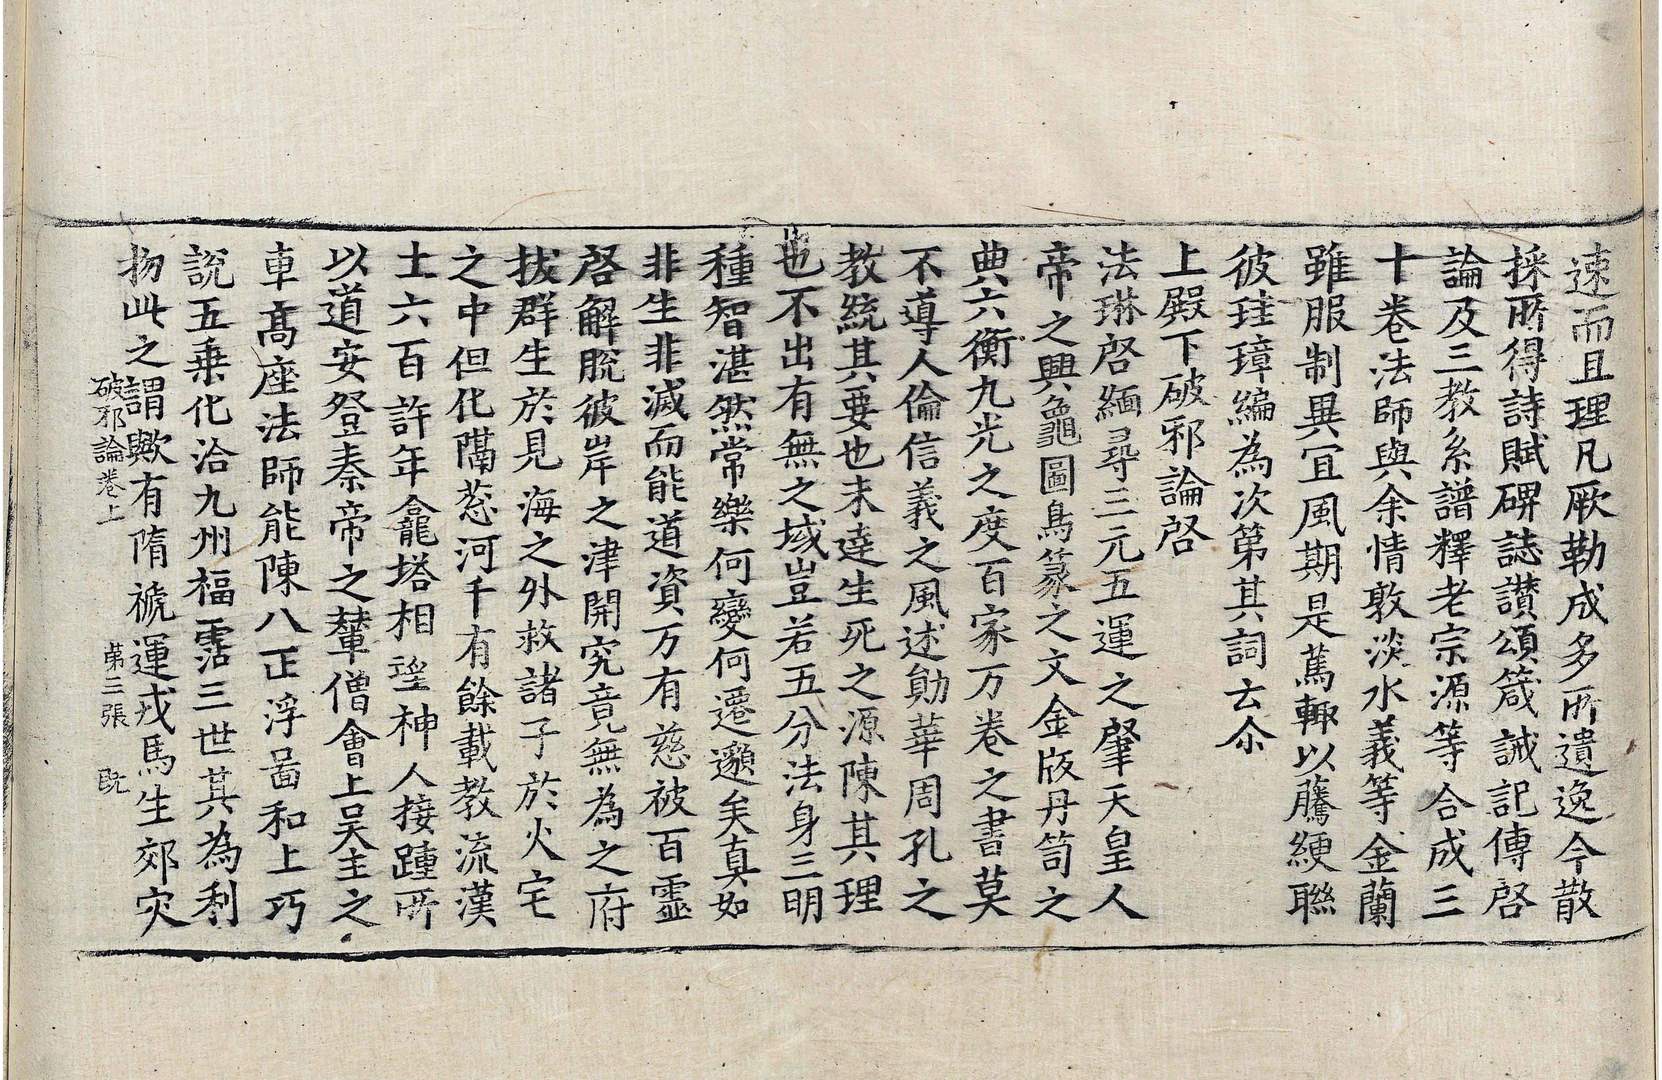 速而且理凡厥勒成多所遺逸今散
採所得詩賦碑誌讃頌箴誡記傳啓
論及三教系譜釋老宗源等合成三
十卷法師與余情敦淡水義等金蘭
雖服制異宜風期是篤輙以騰綆聯
彼珪璋編為次第其詞云尒
上殿下破邪論啓
法琳啓緬尋三元五運之肇天皇人
帝之興龜圖鳥篆之文金版丹笥之
典六衡九光之度百家万卷之書莫
不導人倫信義之風述勛華周孔之
教統其要也未達生死之源陳其理
也不出有無之域豈若五分法身三明
種智湛然常樂何變何遷邈矣真如
非生非滅而能道資万有慈被百靈
啓解脫彼岸之津開究竟無為之府
拔群生於見海之外救諸子於火宅
之中但化隔葱河千有餘載教流漢
土六百許年龕塔相望神人接踵所
以道安登秦帝之輦僧會上吳主之
車高座法師能陳八正浮啚和上巧
說五乗化洽九州福霑三世其為利
物此之謂歟有隋褫運戎馬生郊灾
破邪論卷上 第三張 旣